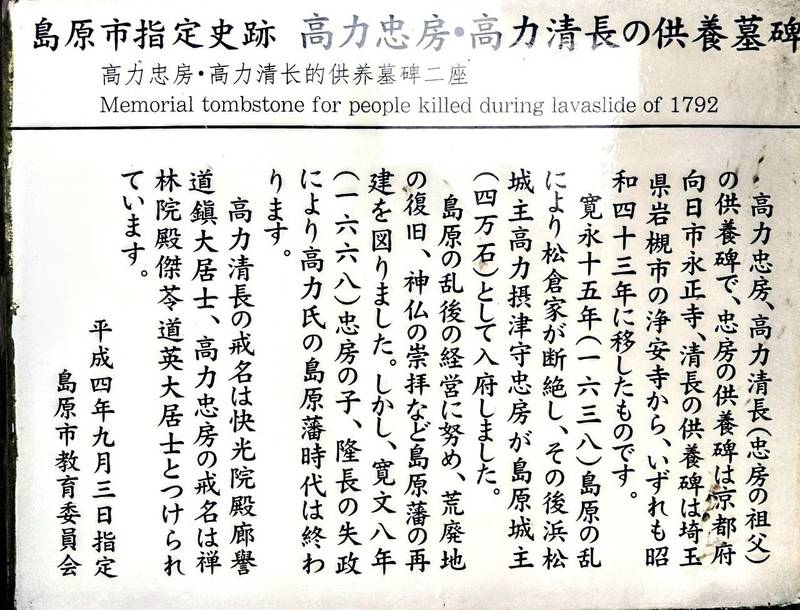 島原市指定史跡 高力忠房・高力清長の供養墓碑
高力忠房・高力清长的供养墓碑二座
Memorial tombstone for people killed during lavaslide of 1792
高力忠房、高力清長(忠房の祖父)
の供養碑で、忠房の供養碑は京都府
向日市永正寺、清長の供養碑は埼玉
県岩槻市の浄安寺から、いずれも昭
和四十三年に移したものです。
寛永十五年(一六三八)島原の乱
により松倉家が断絶し、その後浜松
城主高力摂津守忠房が島原城主
(四万石)として入府しました。
島原の乱後の経営に努め、荒廃地
の復旧、神仏の崇拝など島原藩の再
建を図りました。しかし、寛文八年
(一六六八)忠房の子、隆長の失政
により高力氏の島原藩時代は終わ
ります。
高力清長の戒名は快光院殿廊誉
道鎮大居士、高力忠房の戒名は禅
林院殿傑苓道英大居士とつけられ
ています。
平成四年九月三日指定
島原市教育委員会